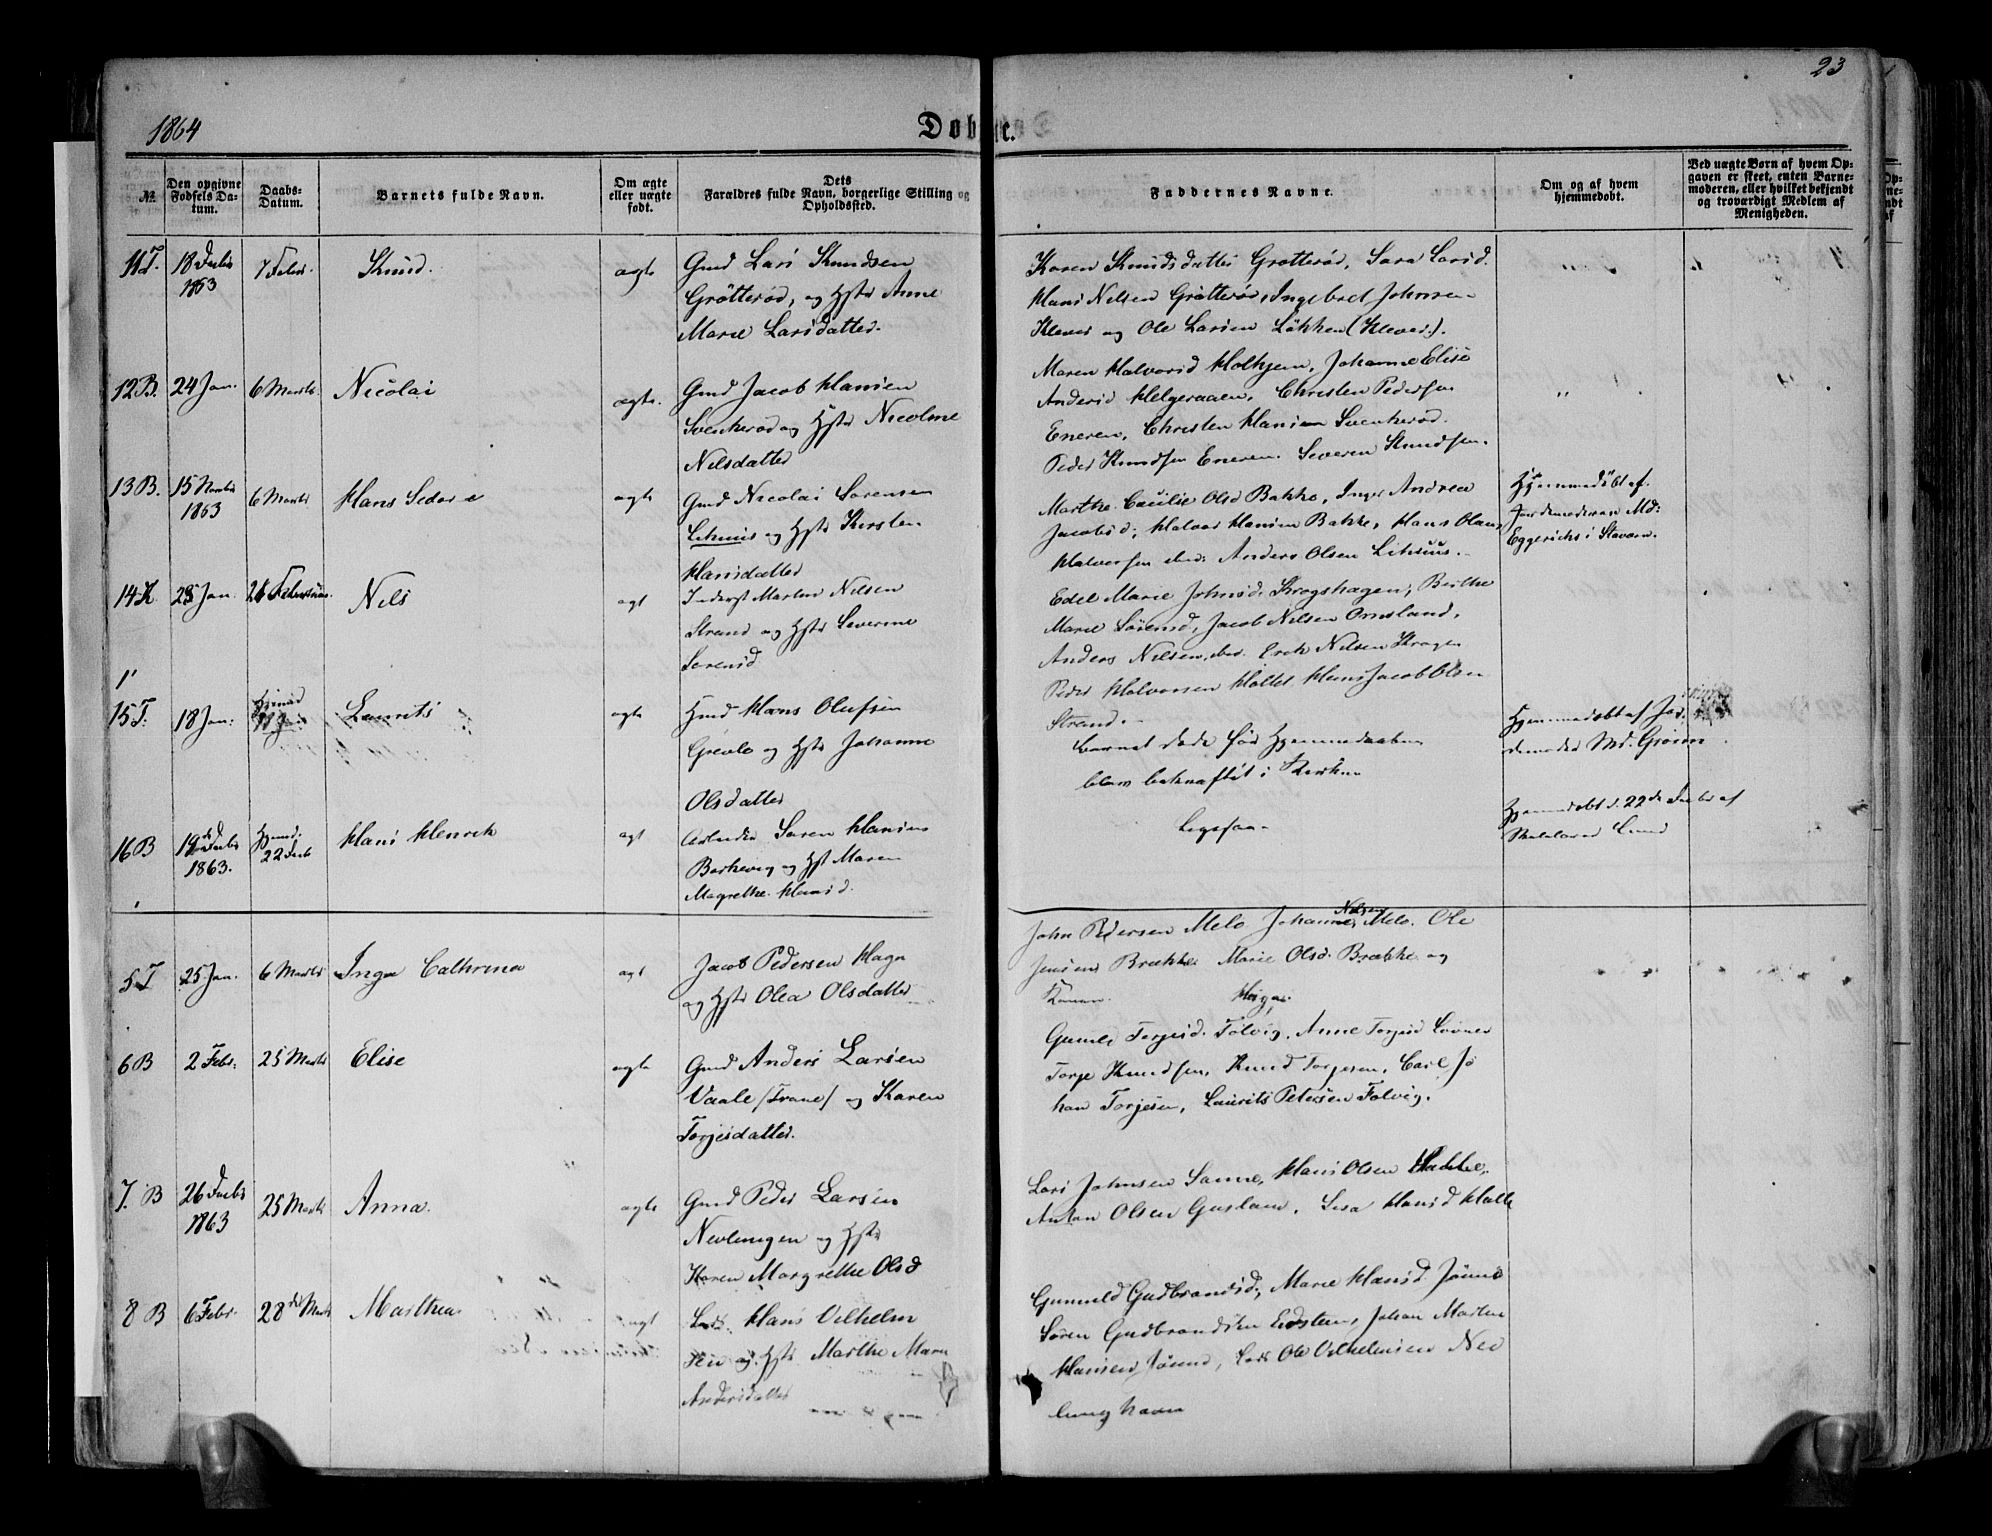 23
1864
Døbte.
№
Den opgivne Fødsels Datum.
Daabs-Datum.
Barnets fulde Navn.
Om ægte eller uægte født.
Dets Forældres fulde Navn, borgerlige Stilling og Opholdssted.
Faddernes Navne.
Om og af hvem hjemmedøbt.
Ved uægte Børn af hvem Opgaven er skeet, enten Barnemoderen, eller hvilket bekjendt og troværdigt Medlem af Menigheden.
11 T. 18 Decbr 1863 7 Febr. Knud. ægte Gmd Lars Knudsen
Grøtterød, og Hstr Anne
Marie Larsdatter.
Karen Knudsdatter Grøtterød, Sara Larsd.
Hans Nelsen Grøtterød, Ingebret Johnsen
Klever og Ole Larsen Løkken (Klever).
12 B. 24 Jan. 6 Marts Nicolai ægte. Gmd Jacob Hansen
Svenkerød og Hstr Nicoline
Nilsdatter
Maren Halvorsd Holtjem, Johanne Elise
Andersd Helgeraaen, Christen Pedersen
Eneren, Christen Hansen Svenkerød.
Peder Knudsen Eneren. Severin Knudsen.
13 B. 15 Novbr 1863 6 Marts Hans ægte Gmd Nicolai Sørensen
og Hstr Kirsten
Hansdatter
Marthe Cecilie Olsd Bakke, Inger Andrea
Jacobsd; Halvor Hansen Bakke, Hans Olaus
Halvorsen ibid. Anders Olsen
Hjemmedøbt af
Jordemoderen Md:
Eggerichs i Stavern.
14 K 28 Jan 21 Februar Nils ægt Inderst Martin Nilsen
Strand og Hstr Severine
Sørensd
Edel Marie Johnsd. Krogshagen, Berthe
Marie Sørensd, Jacob Nilsen Omsland,
Anders Nilsen, ibid. Erik Nilsen Krogen
Peder Halvorsen Holtet Hans Jacob Olsen
Strand.
15 T: 18 Jan: Laurits ægte Gmd Hans Olufsen
Grevle og Hstr Johanne
Olsdatter
Barnet døde før Hjemmedaaben
blev bekræftet i Kirken
Hjemmedøbt af Jor
demoder Md.
16 B 19 Decbr 1863. Hjemd. 22 Decb Hans Henrik ægt Arbeider Søren Hansen
Barkevig og Hst Maren
Magrethe Hansd.
Ligesaa
Hjemmedøbt d. 22de Decbr af
Skolelærer Lund
5 T 25 Jan. 6 Marts Inga Cathrina ægt Jacob Pedersen Haga
og Hstr Olea Olsdatter
John Pedersen Melø Johannes Nilsen Melø. Ole
Jensen Brække Marie Olsd. Brække og
Konen Haga.
6 B 2 Febr. 25 Marts Elise ægte Gmd Anders Larsen
Vaale (Trane) og Karen
Torjesdatter.
Gunild Torjesd. Følvig, Anne Torjesd
Torje Knudsen, Knud Torjesen, Carl Jo
han Torjesen, Laurits Petersen Følvig.
7. B 26 Decbr 1863 25 Marts Anna. ægte Gmd Peder Larsen
Nevlungen og Hstr
Karen Margrethe Olsd
Lars Johnsen Sanne, Hans Olsen
Anton Olsen Guslan, Lisa Hansd
8 B 6 Febr. 28de Marts Marthea ægt Lods Hans Vilhelm
sen og Hstr Marthe Maren
Andersdatter
Gunnild Gudbrandsd, Marie Hansd
Søren Gudbrandsen Eidsten, Johan Martin
Hansen, Lods Ole Vilhelmsen Nev
lunghavn